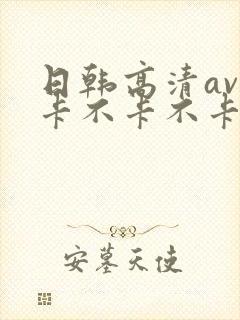 日韩高清av
卡不卡不卡
安墓天使